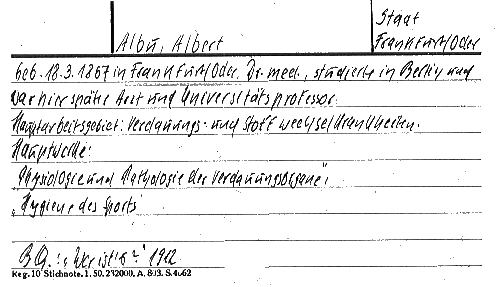 Staat
Albu, Albert Frankfurt/Oder
geb. 18.3.1867 in Frankfurt/Oder. Dr. med., studierte in Berlin und
war hier später Arzt und Universitätsprofessor.
Hauptarbeitsgebiet: Verdauungs- und Stoffwechselkrankheiten.
Hauptwerke:
"Physiologie und Pathologie der Verdauungsorgane";
"Hygiene des Sports"
BQ.: "Wer ist's?" 1912
Reg. 10 Stichnote. 1. 50. 232000. A. 803. S. 4062